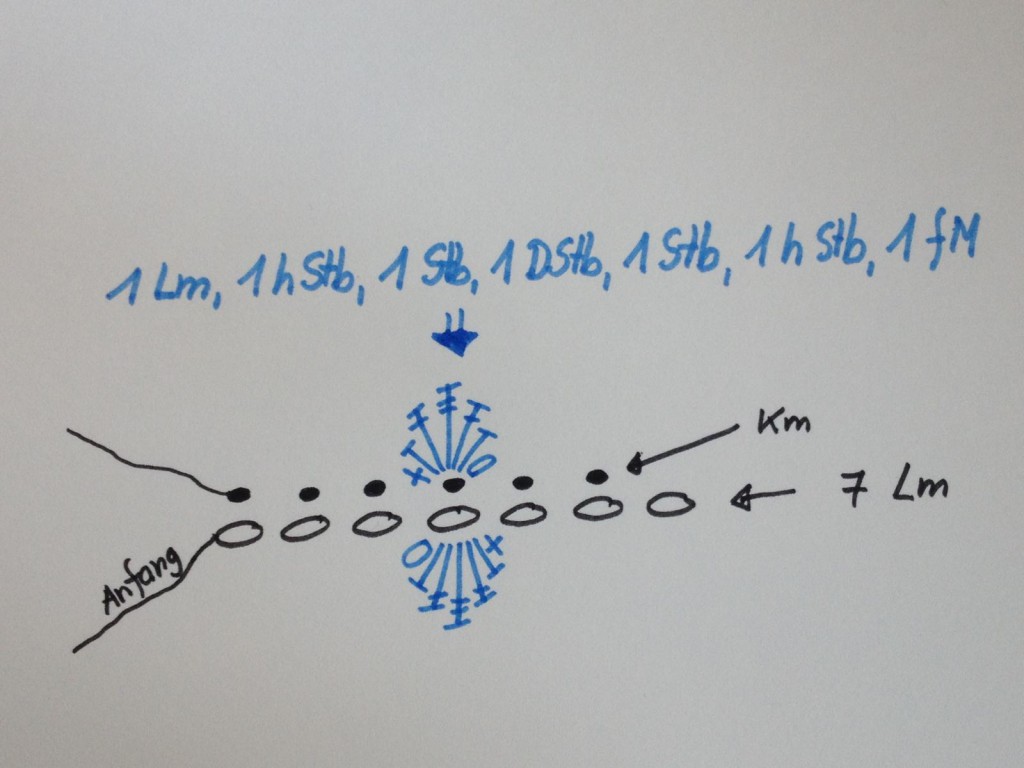 1 Lm, 1 h Stb, 1 Stb, 1 DStb, 1 Stb, 1 h Stb, 1 fM
Km
7 Lm
Anfang